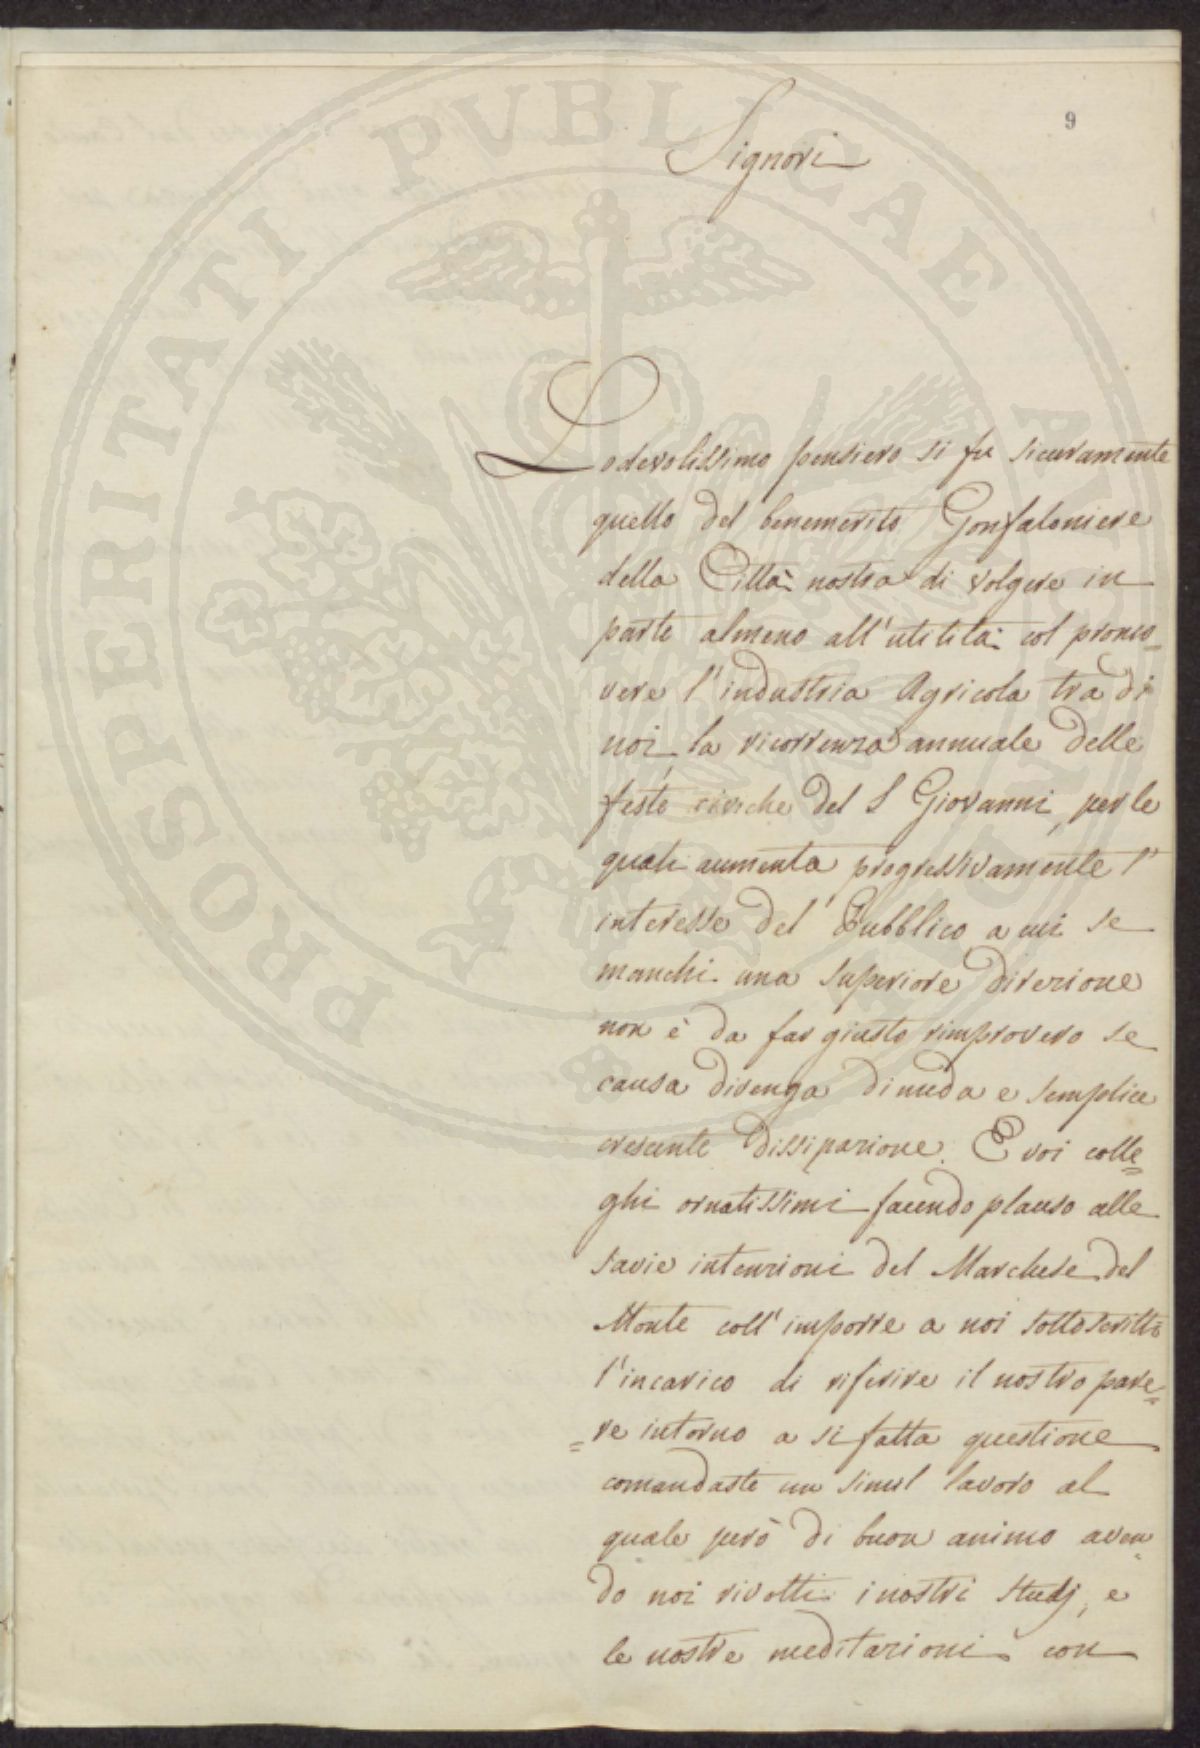 9
Signori
Lodevolissimo pensiero si fu sicuramente
quello del benemerito Gonfaloniere
della Città nostra di volgere in
parte almeno all'utilità col promo=
vere l'industria Agricola tra di
noi la ricorrenza annuale delle
feste civiche del S Giovanni, per le
quali aumenta progressivamente l'
interesse del Pubblico, a cui se
manchi una superiore direzione
non è da far giusto rimprovero se
causa divenga di nuda e semplice
crescente dissipazione. E voi colle=
ghi ornatissimi facendo plauso alle
savie intenzioni del Marchese del
Monte coll'imporre a noi sottoscritti
l'incarico di riferire il nostro pare=
=re intorno a si fatta questione
comandaste un simil lavoro al
quale però di buon animo aven
do noi rivolti i nostri studj, e
le nostre meditazioni con
PROSPERITATI PVBLICAE AV